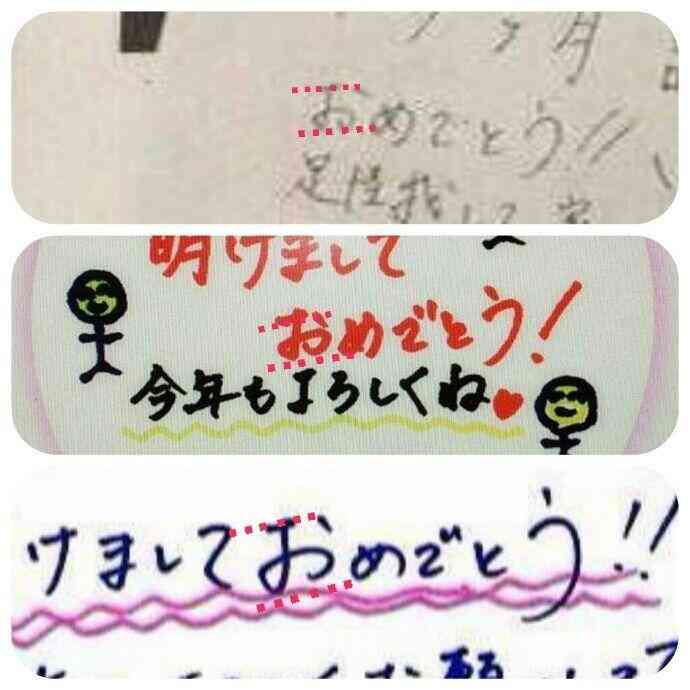 ヶ月
おめでとう!!
足
明けまして
おめでとう!
今年もよろしくね
けましておめでとう!!
願